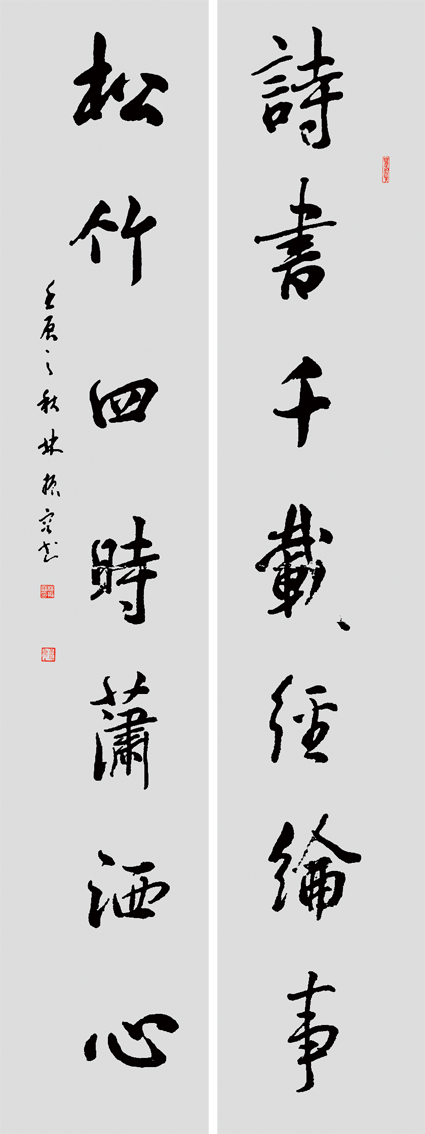 詩書千載經綸事
松竹四時蕭洒心
壬辰之秋林振宏書